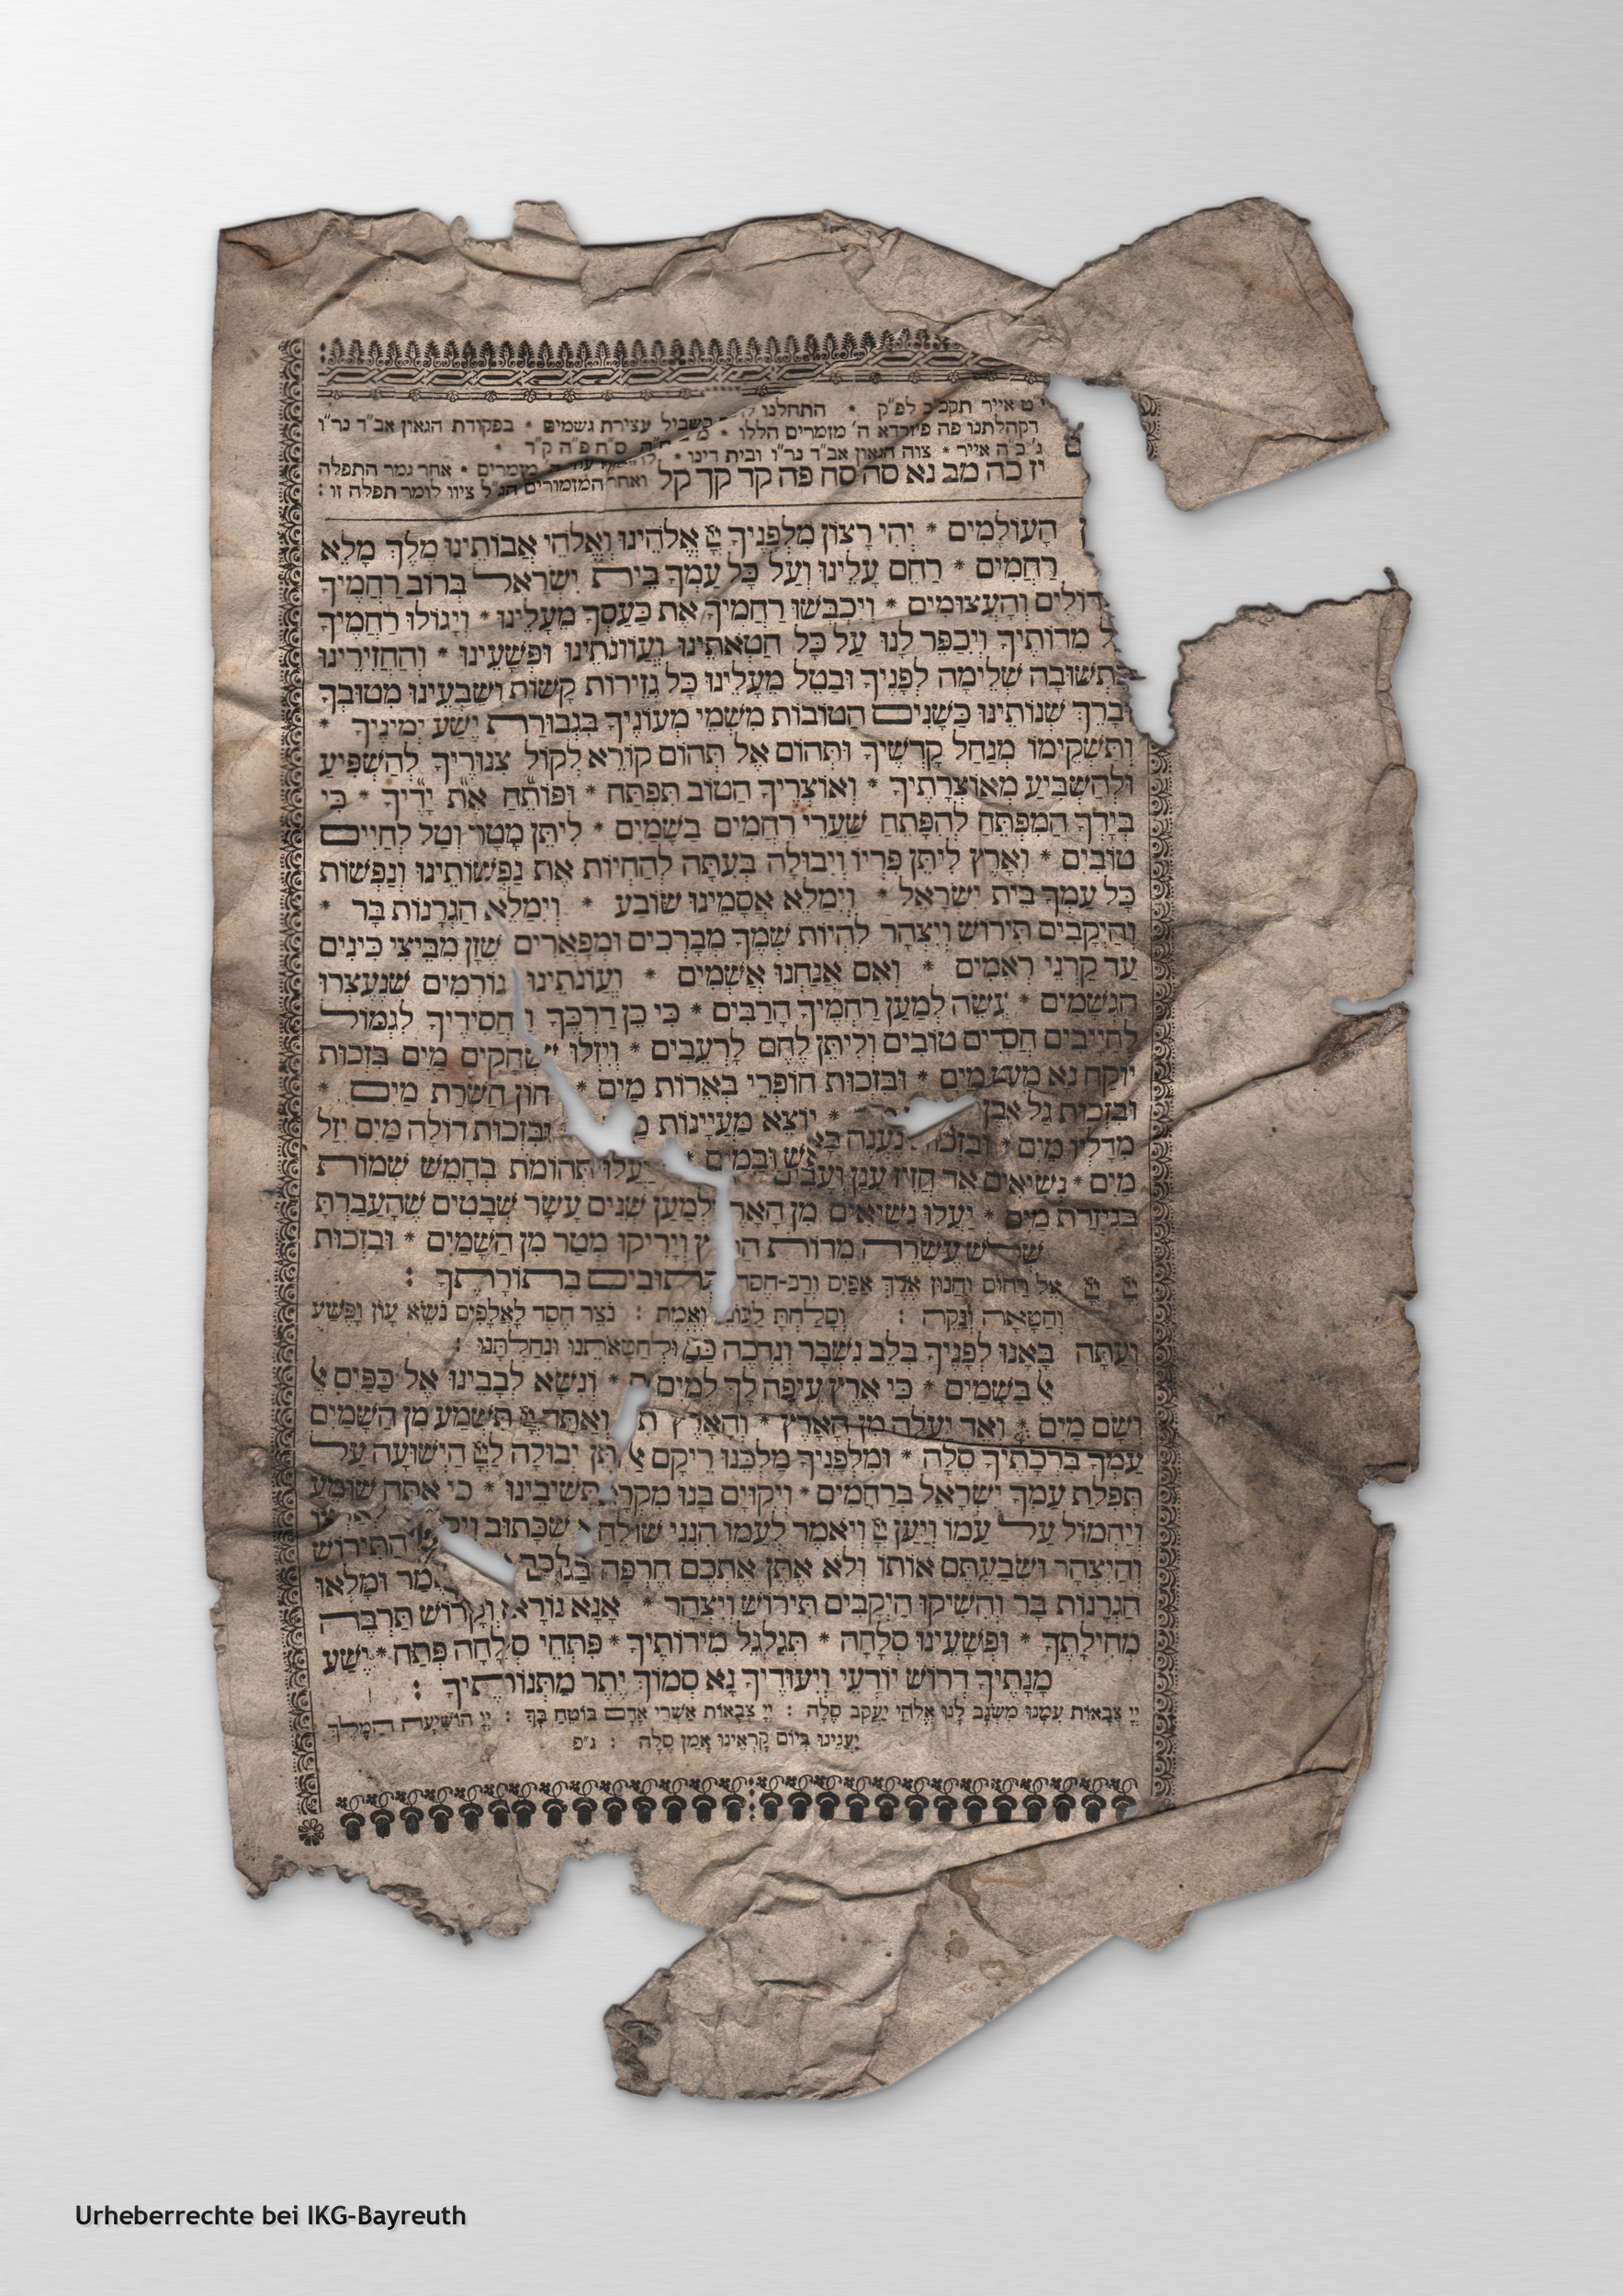 י"ט אייר תקכ"ב לפ"ק * התחלנו בשביל עצירת גשמים * בפקודת הגאון אב"ד נר"ו
דקהלתנו פה פיורדא ה' מזמרים הללו * ס"ח פ"ה ק"ד *
כ"ה אייר * צוה הגאון אב"ד נר"ו ובית דינו * מזמרים * אחר גמר התפלה
יז כה מב נא סה סח פה קד קך קל ואחר המזמורים הנ"ל ציוו לומר תפלה זו :
הָעוֹלָמִים * יְהִי רָצוֹן מִלְּפָנֶיךָ יְיָ אֱלֹהֵינוּ וֶאֱלֹהֵי אֲבוֹתֵינוּ מֶלֶךְ מָלֵא
רַחֲמִים * רַחֵם עָלֵינוּ וְעַל כָּל עַמְּךָ בֵּית יִשְׂרָאֵל בְּרוֹב רַחֲמֶיךָ
וְהָעֲצוּמִים * וְיִכְבְּשׁוּ רַחֲמֶיךָ אֶת כַּעַסְךָ מֵעָלֵינוּ * וְיָגוֹלוּ רַחֲמֶיךָ
מִדּוֹתֶיךָ וְיִכַפֵּר לָנוּ עַל כָּל חַטֹאתֵינוּ וַעֲוֹנֹתֵינוּ וּפְשָׁעֵינוּ * וְהַחֲזִירֵינוּ
בִּתְשׁוּבָה שְׁלֵימָה לְפָנֶיךָ וּבַטֵל מֵעָלֵינוּ כָּל גְזֵירוֹת קָשׁוֹת וְשַׂבְּעֵינוּ מִטוּבְךָ
וּבָרֵךְ שְׁנוֹתֵינוּ כַּשָׁנִים הַטוֹבוֹת מִשְׁמֵי מְעוֹנֶיךָ בִּגְבוּרַת יֵשַׁע יְמִינֶיךָ *
וְתַשְׁקֵימוֹ מִנַחַל קָדְשֶׁיךָ וּתְהוֹם אֶל תְּהוֹם קוֹרֵא לְקוֹל צִנוֹרֶיךָ לְהַשְׁפִּיעַ
וּלְהַשְׂבִּיעַ מֵאוֹצְרָתֶיךָ * וְאוֹצְרֶיךָ הַטוֹב תִּפְתַּח * וּפוֹתֵחַ אֶת יָדֶיךָ * כִּי
בְּיָדְךָ הַמַּפְתֵּחַ לְהִפָּתַח שַׁעֲרֵי רַחֲמִים בַּשָׁמַיִם * לִיתֵּן מָטָר וְטַל לְחַיִים
טוֹבִים * וְאָרֶץ לִיתֵּן פִּרְיוֹ וְיִבוּלָה בְּעִתָּהּ לְהַחֲיוֹת אֶת נַפְשׁוֹתֵינוּ וְנַפְשׁוֹת
כָּל עַמְּךָ בֵּית יִשְׂרָאֵל * וִימַלֵא אֲסָמֵינוּ שׂוֹבַע * וִימַלֵא הַגְּרָנוֹת בָּר *
וְהַיְקָבִים תִּירוֹשׁ וְיִצְהָר לִהְיוֹת שִׁמְךָ מְבָרְכִים וּמְפָאֲרִים שֶׁזָן מִבֵּיצֵי כִּינִים
עַד קַרְנֵי רְאֵמִים * וְאִם אֲנַחְנוּ אֲשֵׁמִים * וַעֲוֹנֹתֵינוּ גּוֹרְמִים שֶׁנֶעֶצְרוּ
הַגְשָׁמִים * עֲשֵׂה לְמַעַן רַחֲמֶיךָ הָרַבִּים * כִּי כֵן דַרְכֶּךָ וַחֲסִידֶיךָ לִגְמוֹל
לְחַיָיבִים חֲסָדִים טוֹבִים וְלִיתֵּן לֶחֶם לָרְעֵבִים * וְיִזְלוּ שְׁחָקִים מַיִם בִּזְכוּת
יוּקַח נָא מְעַט מַיִם * וּבִזְכוּת חוֹפְרֵי בְּאֵרוֹת מַיִם * חוֹן חַשְׁרַת מַיִם *
וּבִזְכוּת גַל אֶבֶן * יוֹצֵא מַעְיָינוֹת וּבִזְכוּת דוֹלָה מַיִם יִזַל
מִדָלְיוֹ מַיִם * נַעֲנֶה בָּאֵשׁ וּבַמַיִם * יַעֲלוּ תְּהוֹמֹת בְּחָמֵשׁ שְׁמוֹת
מַיִם * נְשִׂיאִים אֵד חֲזִיז עָנָן וְעָבִים
בִּגְזֵרַת מַיִם * יַעֲלוּ נְשִׂיאִים מִן הָאָרֶץ לְמַעַן שְׁנֵים עָשָׂר שְׁבָטִים שֶׁהֶעֱבַרְתָּ
שְׁלֹשׁ עֶשְׂרֵה מִדוֹת וְיָרִיקוּ מָטָר מִן הַשָׁמַיִם * וּבִזְכוּת
יְיָ יְיָ אֵל רַחוּם וְחַנוּן אֶרֶךְ אַפַּיִם וְרַב-חֶסֶד הַכְּתוּבִים בְּתוֹרָתֶךָ :
וְחַטָאָה וְנַקֵה : וְסָלַחְתָּ לַעֲוֹנֵנוּ וֶאֱמֶת : נֹצֵר חֶסֶד לָאֲלָפִים נֹשֵׂא עָוֹן וָפֶשַׁע
וְעַתָּה בָּאנוּ לְפָנֶיךָ בְּלֵב נִשְׁבָּר וְנִדְכֶּה וּלְחַטָאתֵנוּ וּנְחַלְתָּנוּ :
בַּשָׁמַיִם * כִּי אֶרֶץ עֲיֵפָה לְךָ לְמַיִם * וְנִשָׂא לְבָבֵינוּ אֶל כַּפַּיִם אֶל
וְשָׁם מַיִם * וְאֵד יַעֲלֶה מִן הָאָרֶץ * וְהָאָרֶץ וְאַתָּה יְיָ תִּשְׁמַע מִן הַשָׁמַיִם
עַמְּךָ בִּרְכָתֶיךָ סֶלָה * וּמִלְפָנֶיךָ מַלְכֵּנוּ רֵיקָם אַל תִּתֵּן יְבוּלָהּ לַיְיָ הַיְשׁוּעָה עַל
תְּפִלַת עַמְּךָ יִשְׂרָאֵל בְּרַחֲמִים * וִיקוּיַם בָּנוּ מִקְרָא תְּשִׁיבֵינוּ * כִּי אַתָּה שׁוֹמֵעַ
וַיַחְמוֹל עַל עַמוֹ וַיַעַן יְיָ וַיֹאמֶר לְעַמוֹ הִנְנִי שׁוֹלֵחַ שֶׁכָּתוּב
וְהַיִצְהָר וּשְׂבַעְתֶּם אוֹתוֹ וְלֹא אֶתֵּן אֶתְכֶם חֶרְפָּה הַתִּירוֹשׁ
הַגְרָנוֹת בָּר וְהֵשִׁיקוּ הַיְקָבִים תִּירוֹשׁ וְיִצְהָר * אָנָא נוֹרָא וְקָדוֹשׁ תַּרְבֶּה וּמָלְאוּ
מְחִילָתֶךָ * וּפְשָׁעֵינוּ סְלָחָה * תְּגַלְגֵל מִידוֹתֶיךָ * פִּתְחֵי סְלָחָה פְּתַח * יֶשַׁע
מָנָתֶיךָ דְרוֹשׁ יוֹדְעֵי וְיִעוּדֶיךָ נָא סְמוֹךְ יֶתֶר מַתְּנוֹתֶיךָ :
יְיָ צְבָאוֹת עִמָנוּ מִשְׂגָב לָנוּ אֱלֹהֵי יַעֲקֹב סֶלָה : יְיָ צְבָאוֹת אַשְׁרֵי אָדָם בּוֹטֵחַ בָּךְ : יְיָ הוֹשִׁיעָה הַמֶלֶךְ
יַעֲנֵינוּ בְּיוֹם קָרְאֵינוּ אָמֵן סֶלָה : ג"פ
Urheberrechte bei IKG-Bayreuth